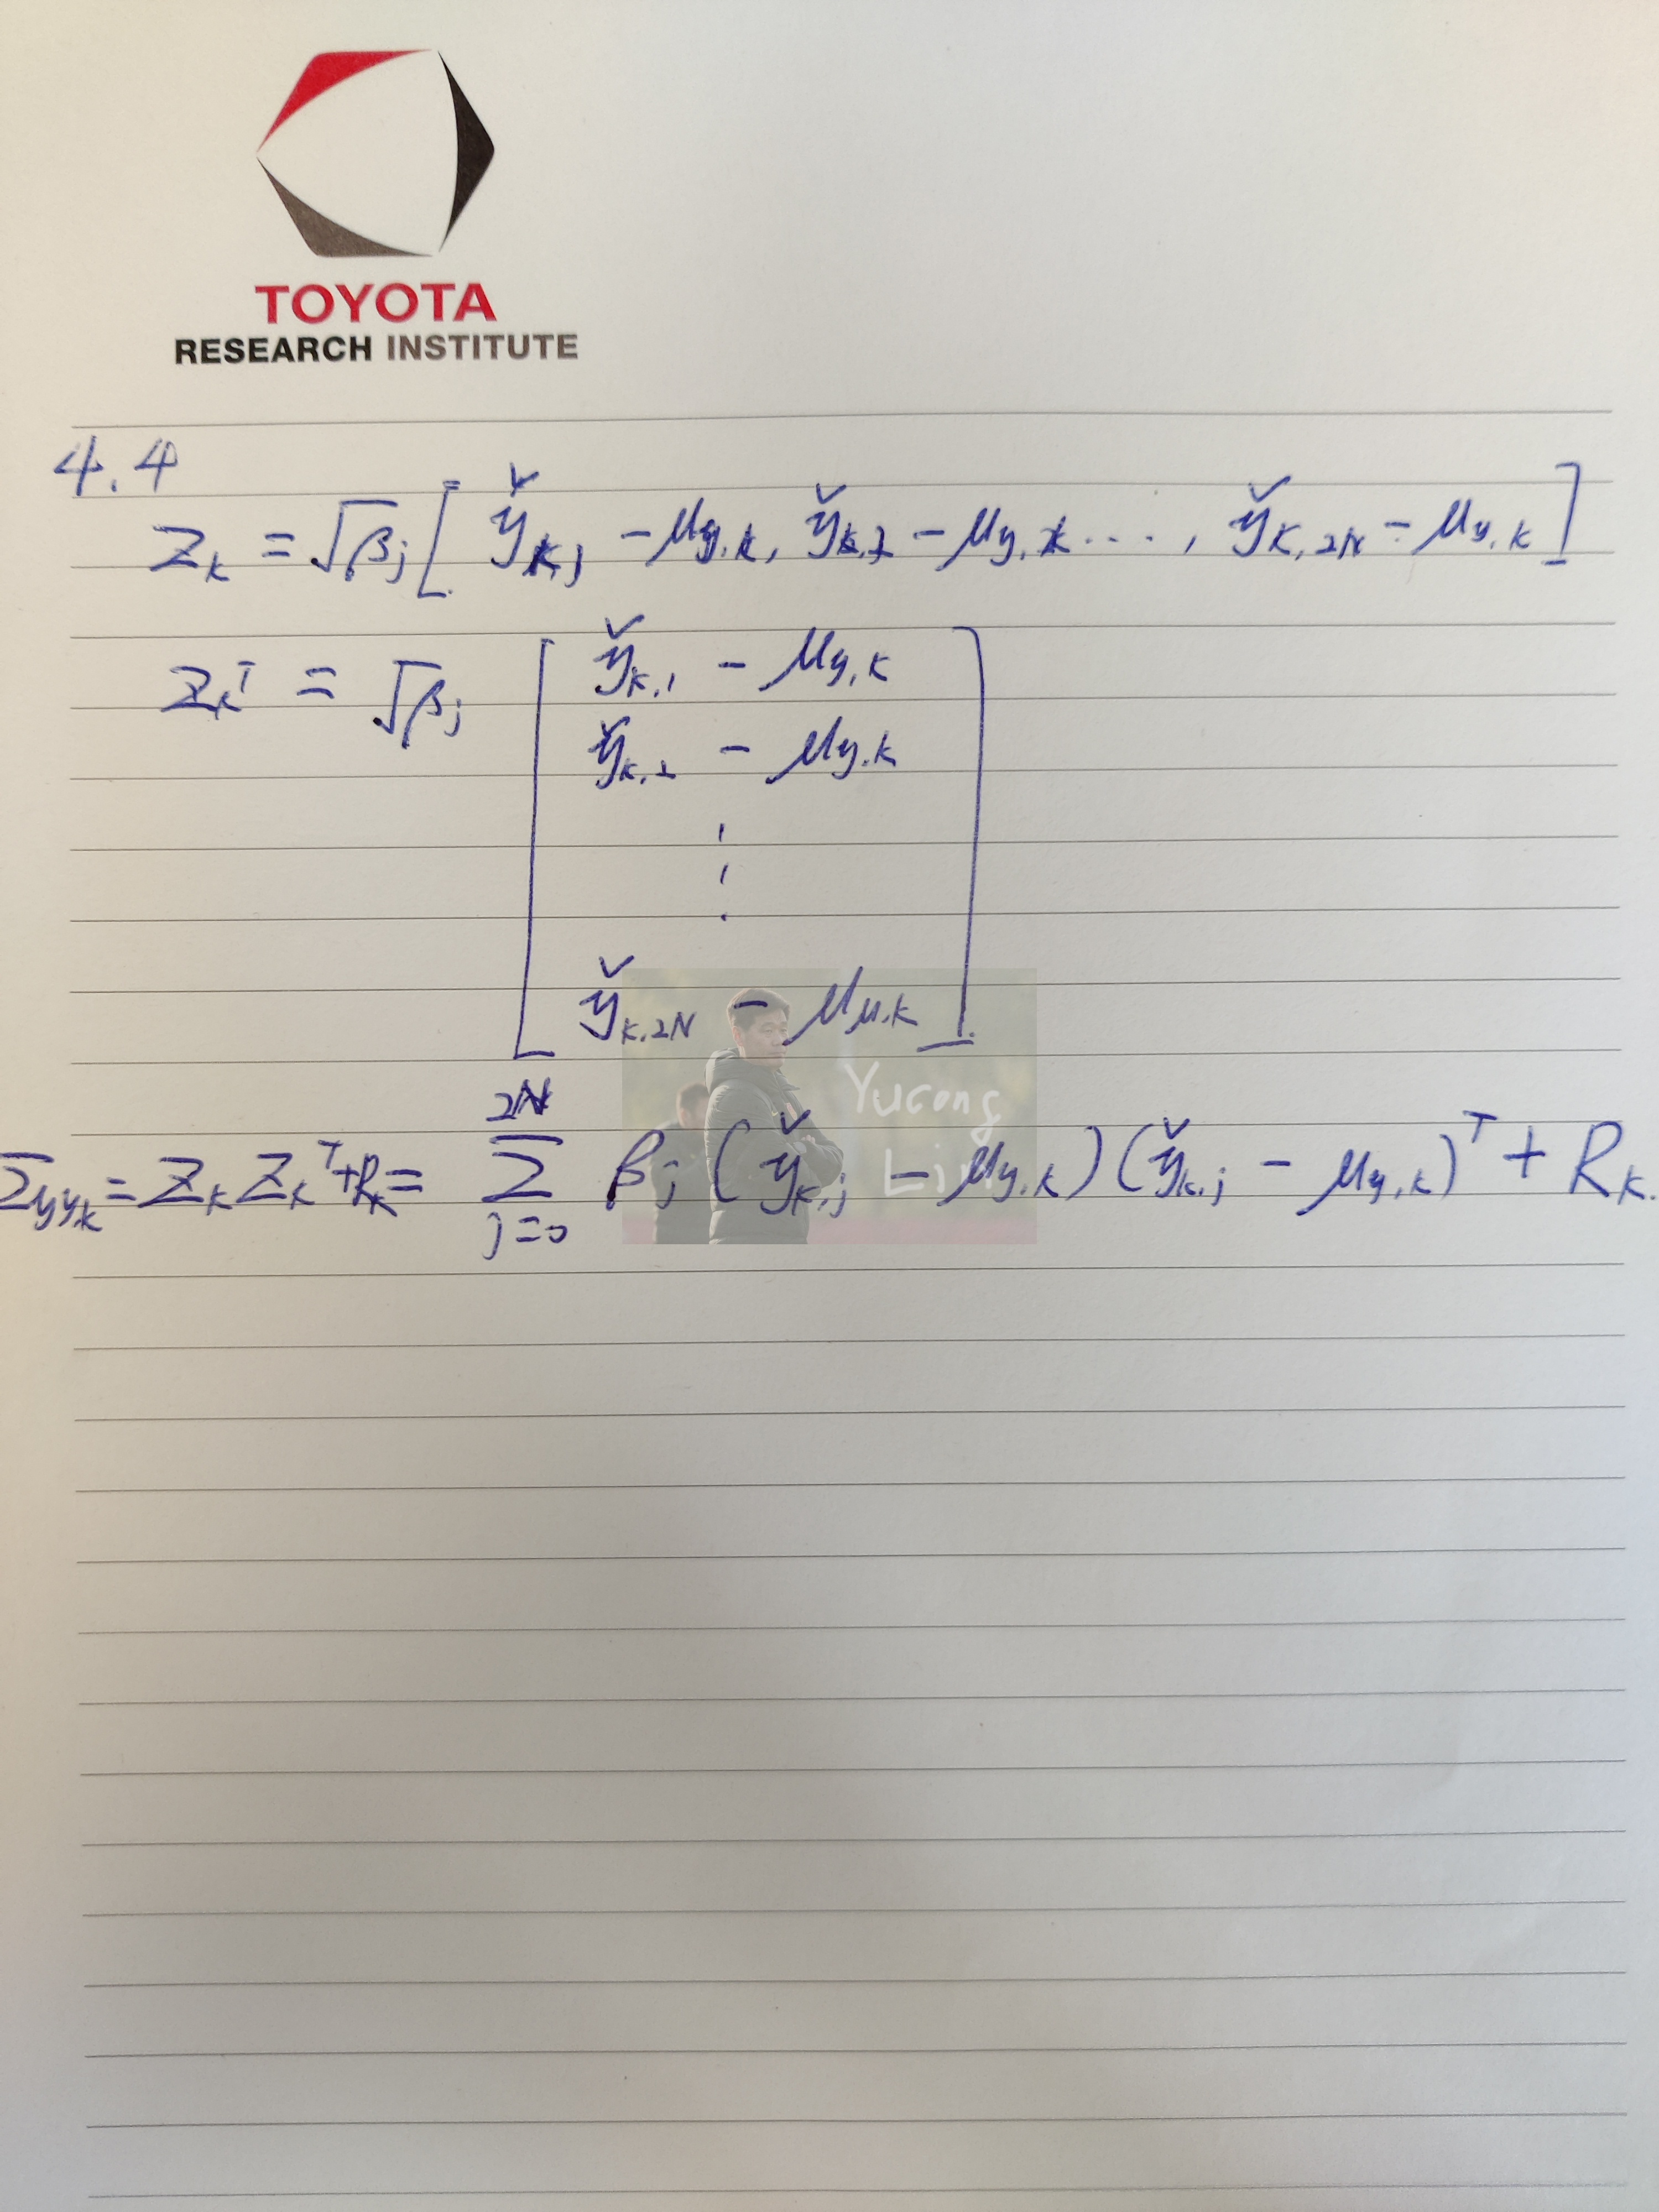 TOYOTA
RESEARCH INSTITUTE
4.4
Z_k = √β_j [ y̌_{k,j} − μ_{y,k}, y̌_{k,2} − μ_{y,k} ..., y̌_{k,2N} − μ_{y,k} ]
Z_k^T = √β_j [ y̌_{k,1} − μ_{y,k}
y̌_{k,2} − μ_{y,k}
⋮
y̌_{k,2N} − μ_{μ,k} ]
Σ_{yy,k} = Z_k Z_k^T + R_k = Σ_{j=0}^{2N} β_j (y̌_{k,j} − μ_{y,k})(y̌_{k,j} − μ_{y,k})^T + R_k.
Yucong